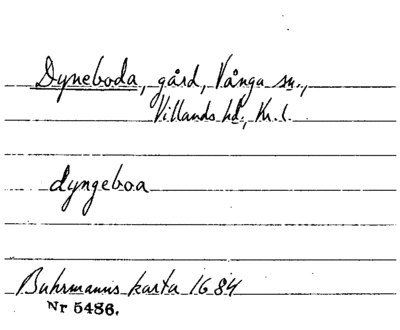 Dyneboda, gård, Vånga sn.,
Villands hd., Kr. l.
dyngeboa
Buhrmanns karta 1684
Nr 5436.